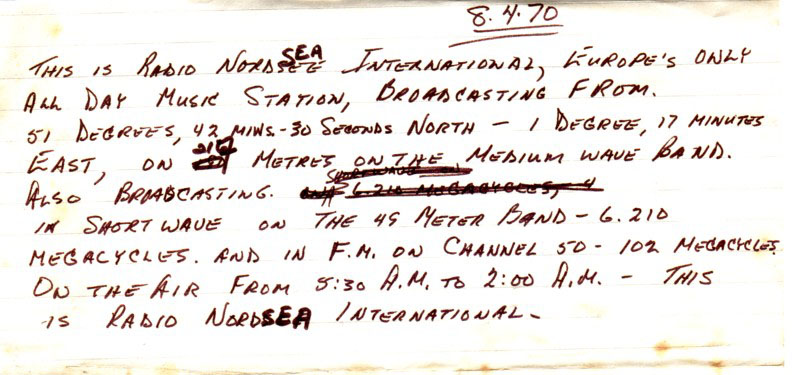 8.4.70
THIS IS RADIO NORDSEA INTERNATIONAL, EUROPE'S ONLY
ALL DAY MUSIC STATION, BROADCASTING FROM.
51 DEGREES, 42 MINS.-30 SECONDS NORTH - 1 DEGREE, 17 MINUTES
EAST, ON METRES ON THE MEDIUM WAVE BAND.
ALSO BROADCASTING.
IN SHORT WAVE ON THE 49 METER BAND - 6.210
MEGACYCLES. AND IN F.M. ON CHANNEL 50 - 102 MEGACYCLES
ON THE AIR FROM 5:30 A.M. TO 2:00 A.M. - THIS
IS RADIO NORDSEA INTERNATIONAL -